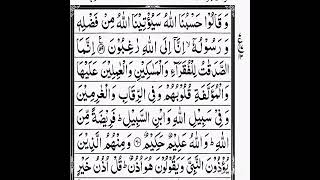 وَ قَالُوۡا حَسۡبُنَا اللّٰهُ سَیُؤۡتِیۡنَا اللّٰهُ مِنۡ فَضۡلِهٖ
وَ رَسُوۡلُهٗۤ ۙ اِنَّاۤ اِلَی اللّٰهِ رٰغِبُوۡنَ ﴿۵۹﴾ اِنَّمَا
الصَّدَقٰتُ لِلۡفُقَرَآءِ وَ الۡمَسٰكِیۡنِ وَ الۡعٰمِلِیۡنَ عَلَیۡهَا
وَ الۡمُؤَلَّفَةِ قُلُوۡبُهُمۡ وَ فِی الرِّقَابِ وَ الۡغٰرِمِیۡنَ
وَ فِیۡ سَبِیۡلِ اللّٰهِ وَ ابۡنِ السَّبِیۡلِ ؕ فَرِیۡضَةً مِّنَ
اللّٰهِ ؕ وَ اللّٰهُ عَلِیۡمٌ حَكِیۡمٌ ﴿۶۰﴾ وَ مِنۡهُمُ الَّذِیۡنَ
یُؤۡذُوۡنَ النَّبِیَّ وَ یَقُوۡلُوۡنَ هُوَ اُذُنٌ ؕ قُلۡ اُذُنُ خَیۡرٍ